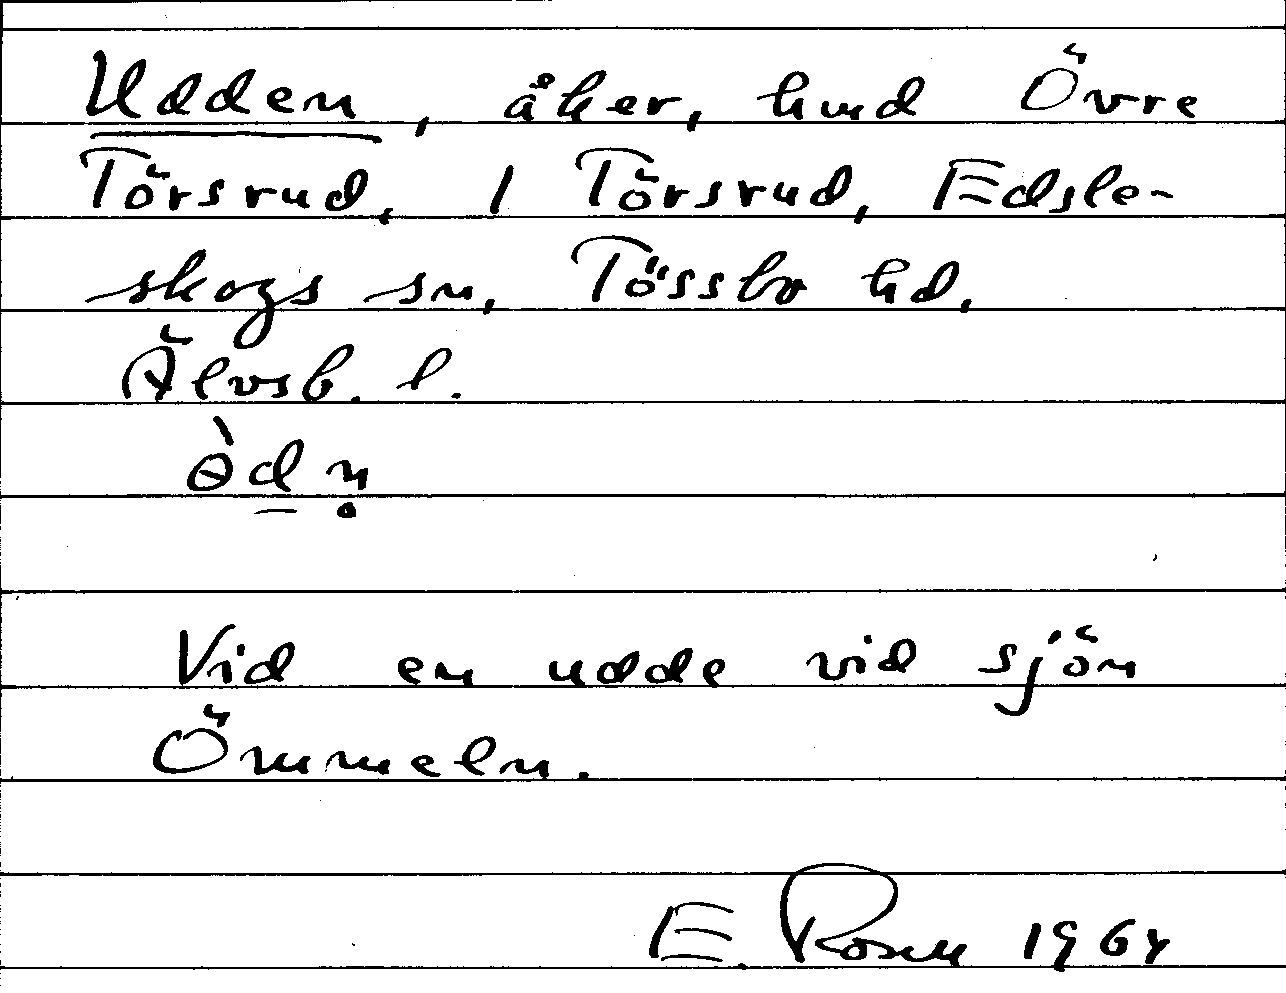 Udden, åker, hmd Övre
Törsrud, 1 Törsrud, Edsle-
skogs sn, Tössbo hd,
Älvsb. l.
ɵ̀d̲ṇ
Vid en udde vid sjön
Ömmeln.
E. Rosen 1964